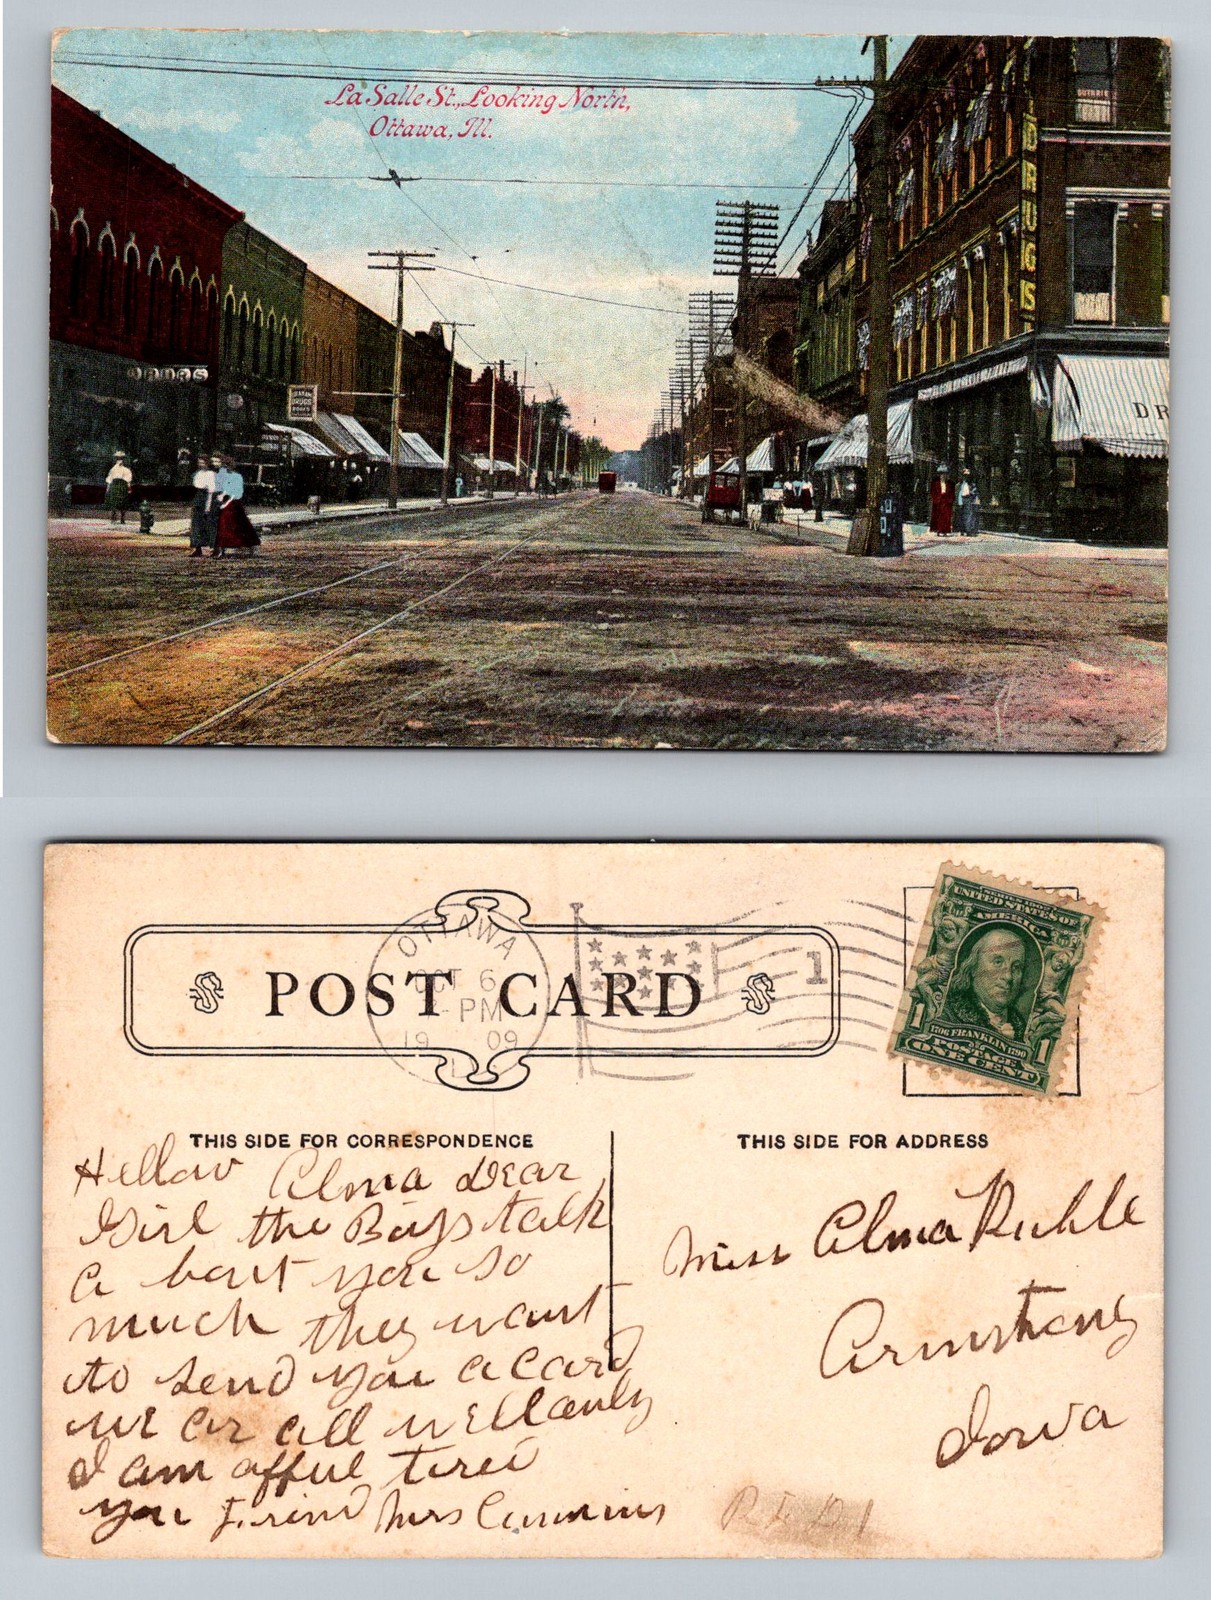 La Salle St., Looking North,
Ottawa, Ill.
GUTHRIE
DRUGS
DRUGS
DR
POST CARD
OTTAWA
OCT 6
PM
19 09
ILL
1
SERIES 1902
UNITED STATES OF
AMERICA
1706 FRANKLIN 1790
POSTAGE
1 ONE CENT 1
THIS SIDE FOR CORRESPONDENCE
THIS SIDE FOR ADDRESS
Hellow Alma Dear
Girl the Boys talk
a bout you so
much they want
to send you a card
we ar all well only
I am afful tired
you Friend Mrs Cummins
Miss Alma Ruhle
Armstrong
Iowa